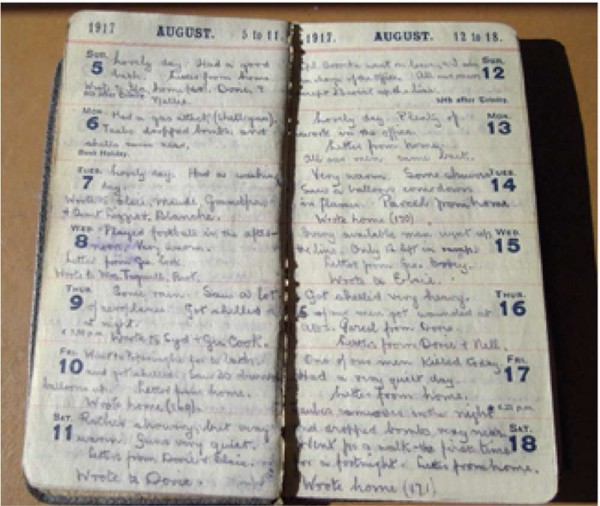 1917 AUGUST. 5 to 11.
SUN. Lovely day. Had a good
5 bath. Letter from home
Wrote to home Dore, &
9th after Trinity Nellie.
MON. Had a gas attack (shell gas).
6 Taube dropped bombs and
shells came near.
Bank Holiday.
TUES. Lovely day. Had a washing
7 day.
Wrote to Elsie, Maude, Grandpa
& Aunt Blanche.
WED. Played football in the after-
8 noon. Very warm.
Letter from Geo. Cook.
Wrote to Mrs.
THUR. Some rain. Saw a lot
9 of aeroplanes. Got shelled
at night.
Wrote to Syd & Geo. Cook.
FRI. Went to for a bath
10 and got shelled. Saw 20
balloons up. Letter from home.
Wrote home (169).
SAT. Rather showery, but very
11 warm. Guns very quiet.
Letters from Dore & Elsie.
Wrote to Dore.
1917. AUGUST. 12 to 18.
went on leave, & I only SUN.
in charge of the office. All our men 12
except up the line.
10th after Trinity.
Lovely day. Plenty of MON.
work in the office. 13
Letter from home.
All our men came back.
Very warm. Some showers TUES.
Saw a balloon come down 14
in flames. Parcel from home.
Wrote home (170)
Every available man went up WED.
the line. Only left in camp. 15
Letter from Geo.
Wrote to Elsie.
Got shelled very heavy. THUR.
5 of our men got wounded at 16
Parcel from Dore.
Letters from Dore & Nell.
One of our men killed today. FRI.
Had a very quiet day. 17
Letter from home.
came over in the night
and dropped bombs very near. SAT.
Went for a walk - the first time 18
for a fortnight. Letter from home.
Wrote home (171)